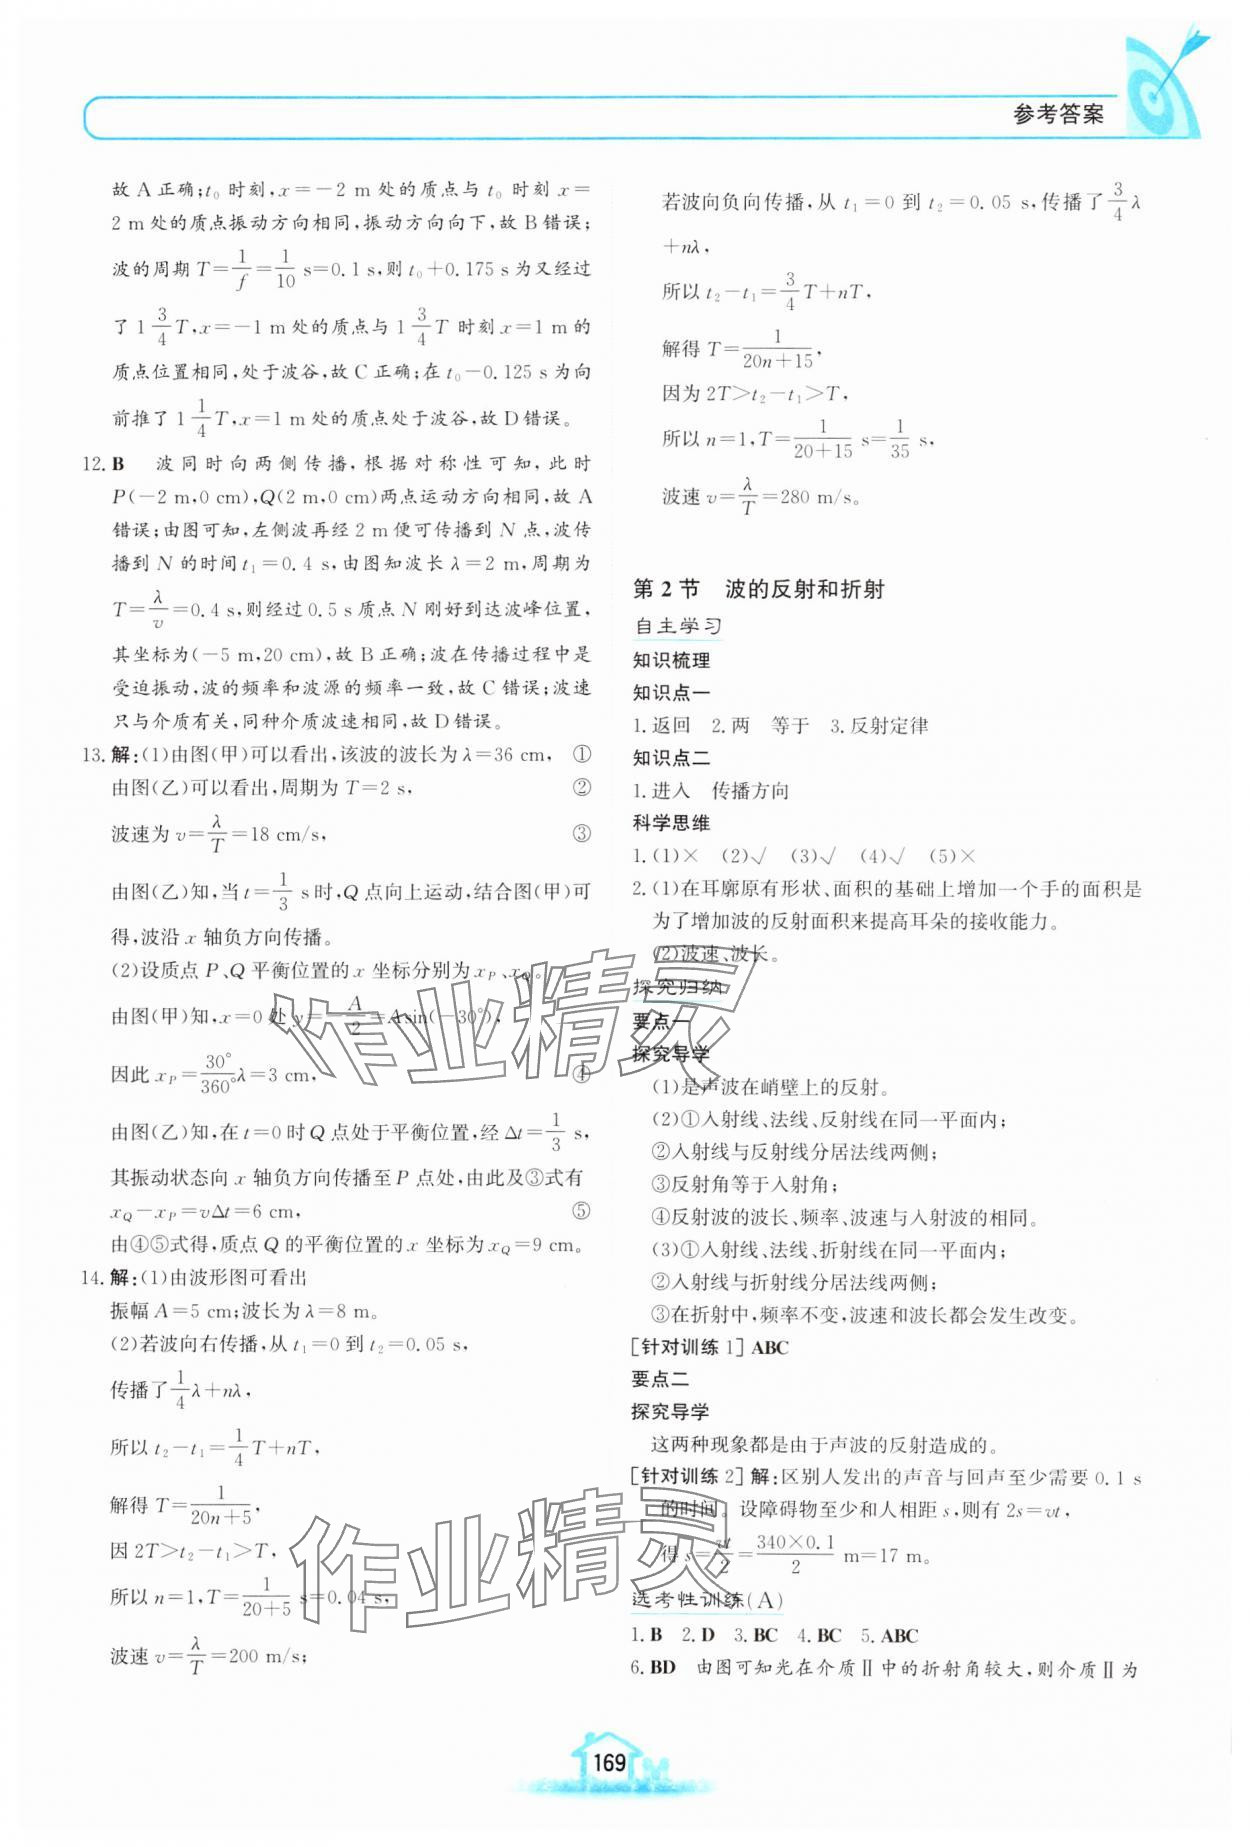 参考答案
故A正确;t₀时刻,x=-2 m处的质点与t₀时刻x=
2 m处的质点振动方向相同,振动方向向下,故B错误;
波的周期T=1/f=1/10 s=0.1 s,则t₀+0.175 s为又经过
了1 3/4 T,x=-1 m处的质点与1 3/4 T时刻x=1 m的
质点位置相同,处于波谷,故C正确;在t₀-0.125 s为向
前推了1 1/4 T,x=1 m处的质点处于波谷,故D错误。
12. B 波同时向两侧传播,根据对称性可知,此时
P(-2 m,0 cm),Q(2 m,0 cm)两点运动方向相同,故A
错误;由图可知,左侧波再经2 m便可传播到N点,波传
播到N的时间t₁=0.4 s,由图知波长λ=2 m,周期为
T=λ/v=0.4 s,则经过0.5 s质点N刚好到达波峰位置,
其坐标为(-5 m,20 cm),故B正确;波在传播过程中是
受迫振动,波的频率和波源的频率一致,故C错误;波速
只与介质有关,同种介质波速相同,故D错误。
13. 解:(1)由图(甲)可以看出,该波的波长为λ=36 cm, ①
由图(乙)可以看出,周期为T=2 s, ②
波速为v=λ/T=18 cm/s, ③
由图(乙)知,当t=1/3 s时,Q点向上运动,结合图(甲)可
得,波沿x轴负方向传播。
(2)设质点P、Q平衡位置的x坐标分别为x_P、x_Q。
由图(甲)知,x=0处y=-A/2=Asin(-30°),
因此x_P=30°/360°λ=3 cm, ④
由图(乙)知,在t=0时Q点处于平衡位置,经Δt=1/3 s,
其振动状态向x轴负方向传播至P点处,由此及③式有
x_Q-x_P=vΔt=6 cm, ⑤
由④⑤式得,质点Q的平衡位置的x坐标为x_Q=9 cm。
14. 解:(1)由波形图可看出
振幅A=5 cm;波长为λ=8 m。
(2)若波向右传播,从t₁=0到t₂=0.05 s,
传播了1/4 λ+nλ,
所以t₂-t₁=1/4 T+nT,
解得T=1/(20n+5),
因2T>t₂-t₁>T,
所以n=1,T=1/(20+5) s=0.04 s,
波速v=λ/T=200 m/s;
若波向负向传播,从t₁=0到t₂=0.05 s,传播了3/4 λ
+nλ,
所以t₂-t₁=3/4 T+nT,
解得T=1/(20n+15),
因为2T>t₂-t₁>T,
所以n=1,T=1/(20+15) s=1/35 s,
波速v=λ/T=280 m/s。
第2节 波的反射和折射
自主学习
知识梳理
知识点一
1.返回 2.两 等于 3.反射定律
知识点二
1.进入 传播方向
科学思维
1.(1)× (2)√ (3)√ (4)√ (5)×
2.(1)在耳廓原有形状、面积的基础上增加一个手的面积是
为了增加波的反射面积来提高耳朵的接收能力。
(2)波速、波长。
探究归纳
要点一
探究导学
(1)是声波在峭壁上的反射。
(2)①入射线、法线、反射线在同一平面内;
②入射线与反射线分居法线两侧;
③反射角等于入射角;
④反射波的波长、频率、波速与入射波的相同。
(3)①入射线、法线、折射线在同一平面内;
②入射线与折射线分居法线两侧;
③在折射中,频率不变,波速和波长都会发生改变。
[针对训练1] ABC
要点二
探究导学
这两种现象都是由于声波的反射造成的。
[针对训练2] 解:区别人发出的声音与回声至少需要0.1 s
的时间。设障碍物至少和人相距s,则有2s=vt,
得s=vt/2=(340×0.1)/2 m=17 m。
选考性训练(A)
1. B 2. D 3. BC 4. BC 5. ABC
6. BD 由图可知光在介质Ⅱ中的折射角较大,则介质Ⅱ为
169
作业精灵
作业精灵